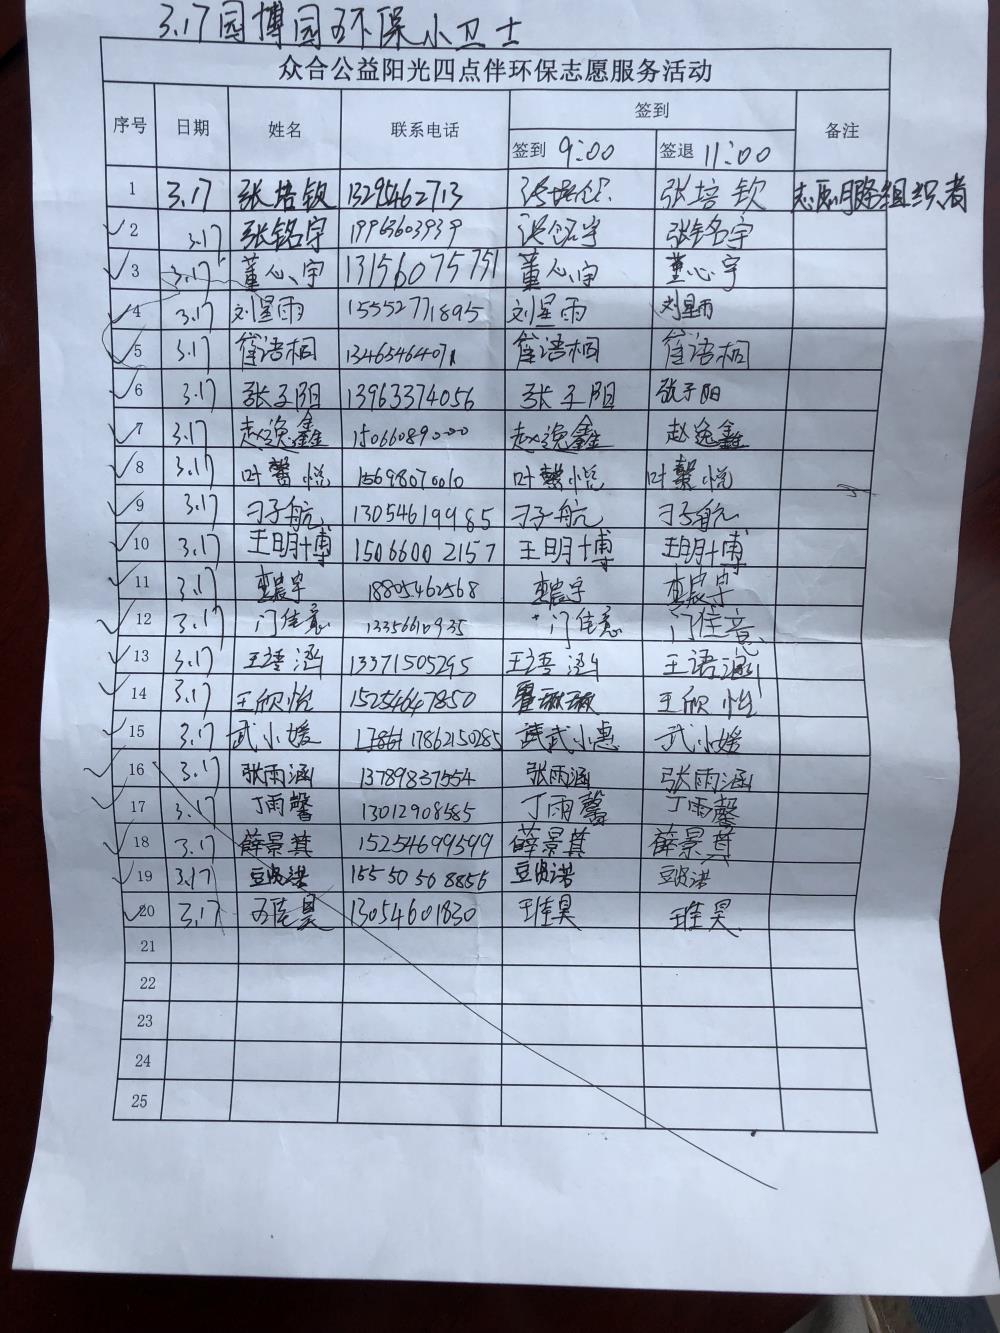 3.17园博园环保小卫士
众合公益阳光四点伴环保志愿服务活动
序号 日期 姓名 联系电话 签到 备注
签到 9:00 签退 11:00
1 3.17 张培钦 13295462713 张培钦 张培钦 志愿服务组织者
2 3.17 张铭宇 张铭宇 张铭宇
3 3.17 董心宇 13156075751 董心宇 董心宇
4 3.17 刘星雨 15552771895 刘星雨 刘星雨
5 3.17 语桐 13465464071 语桐 语桐
6 3.17 张子阳 13963374056 张子阳 张子阳
7 3.17 赵逸鑫 15066089000 赵逸鑫 赵逸鑫
8 3.17 叶馨悦 15698070010 叶馨悦 叶馨悦
9 3.17 刁子航 13054619985 刁子航 刁子航
10 3.17 王明博 15066002157 王明博 王明博
11 3.17 18805462568
12 3.17 门佳意 13356610935 门佳意 门佳意
13 3.17 王语涵 13371505295 王语涵 王语涵
14 3.17 王欣怡 15254647850 王欣怡
15 3.17 武小媛 17862150285 武小惠 武小媛
16 3.17 张雨涵 13789837554 张雨涵 张雨涵
17 3.17 丁雨馨 13012908585 丁雨馨 丁雨馨
18 3.17 薛景其 15254699599 薛景其 薛景其
19 3.17 豆贤诺 15550568856 豆贤诺 豆贤诺
20 3.17 王佳昊 13054601830 王佳昊 王佳昊
21
22
23
24
25